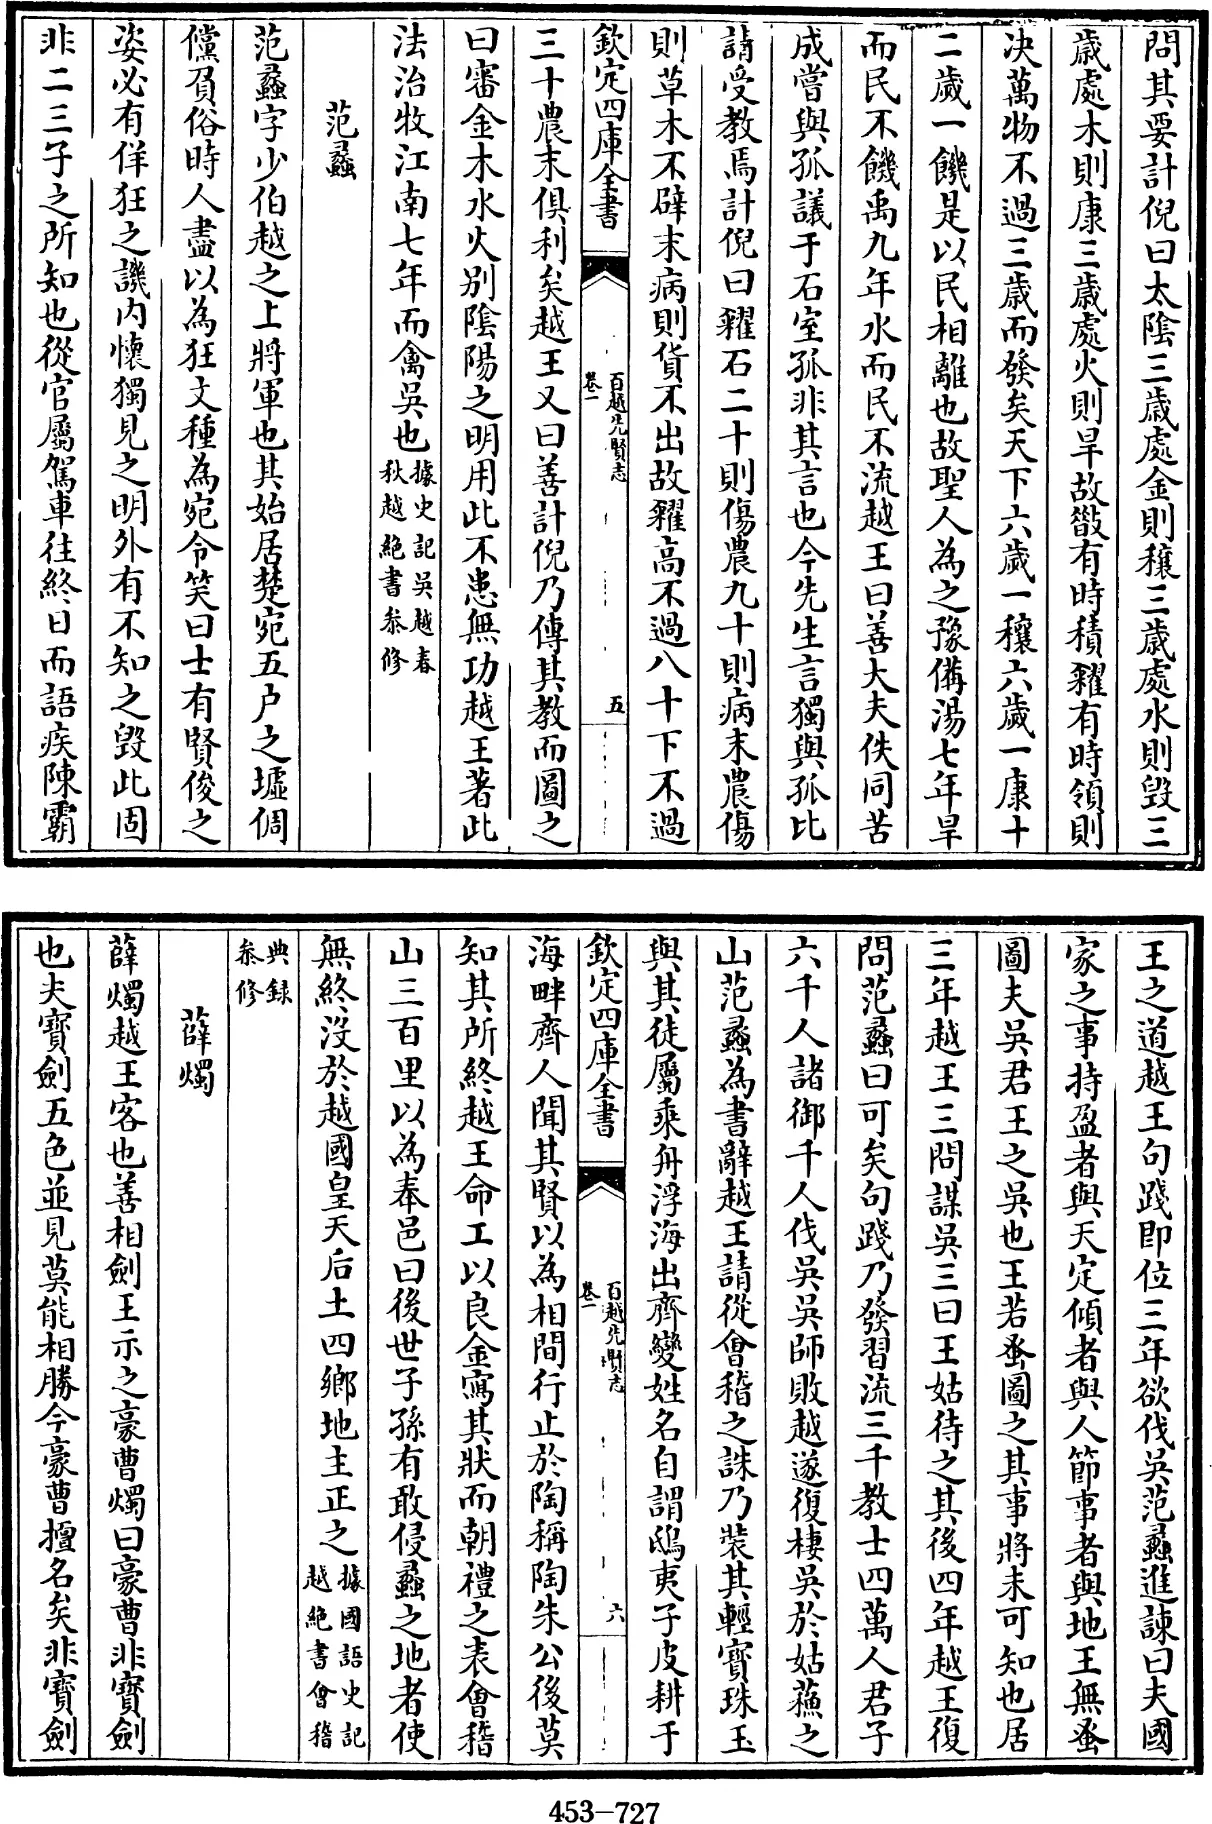 問其要計倪曰太陰三歲處金則穰三歲處水則毀三
歲處木則康三歲處火則旱故散有時積糴有時領則
決萬物不過三歲而發矣天下六歲一穰六歲一康十
二歲一饑是以民相離也故聖人為之豫備湯七年旱
而民不饑禹九年水而民不流越王曰善大夫佚同苦
成嘗與孤議于石室孤非其言也今先生言獨與孤比
請受教焉計倪曰糴石二十則傷農九十則病末農傷
則草木不辟末病則貨不出故糴高不過八十下不過
欽定四庫全書
百越先賢志
卷一
五
三十農末俱利矣越王又曰善計倪乃傳其教而圖之
曰審金木水火別陰陽之明用此不患無功越王著此
法治牧江南七年而禽吳也據史記吳越春
秋越絕書叅修
范蠡
范蠡字少伯越之上將軍也其始居楚宛五户之墟倜
儻負俗時人盡以為狂文種為宛令笑曰士有賢俊之
姿必有佯狂之譏内懷獨見之明外有不知之毀此固
非二三子之所知也從官屬駕車往終日而語疾陳霸
王之道越王句踐即位三年欲伐吳范蠡進諫曰夫國
家之事持盈者與天定傾者與人節事者與地王無蚤
圖夫吳君王之吳也王若蚤圖之其事將未可知也居
三年越王三問謀吳三曰王姑待之其後四年越王復
問范蠡曰可矣句踐乃發習流三千教士四萬人君子
六千人諸御千人伐吳吳師敗越遂復棲吳於姑蘓之
山范蠡為書辭越王請從會稽之誅乃裝其輕寳珠玉
與其徒屬乘舟浮海出齊變姓名自謂鴟夷子皮耕于
欽定四庫全書
百越先賢志
卷一
六
海畔齊人聞其賢以為相間行止於陶稱陶朱公後莫
知其所終越王命工以良金寫其狀而朝禮之表會稽
山三百里以為奉邑曰後世子孫有敢侵蠡之地者使
無終沒於越國皇天后土四鄉地主正之據國語史記
越絕書會稽
典録
叅修
薛燭
薛燭越王客也善相劍王示之豪曹燭曰豪曹非寳劍
也夫寳劍五色並見莫能相勝今豪曹擅名矣非寳劍
453-727